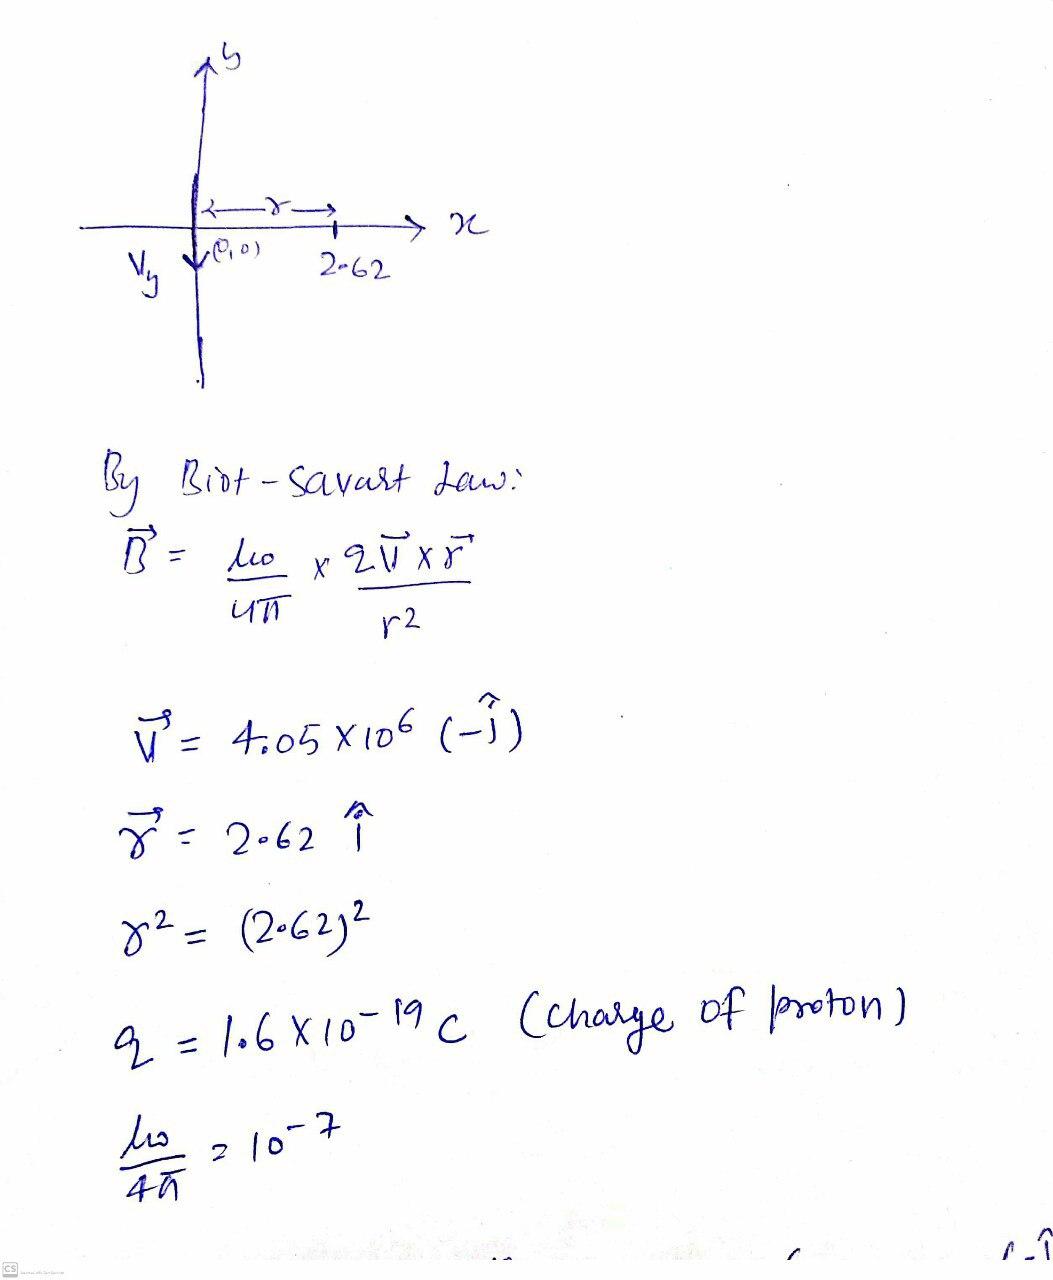 y
r
x
(0,0)
Vy
2.62
By Biot-Savart Law:
B⃗ = μ0/4π × qv⃗ × r⃗/r2
v⃗ = 4.05 × 10^6 (-ĵ)
r⃗ = 2.62 î
r^2 = (2.62)^2
q = 1.6 × 10^-19 C (charge of proton)
μ0/4π = 10^-7
CS